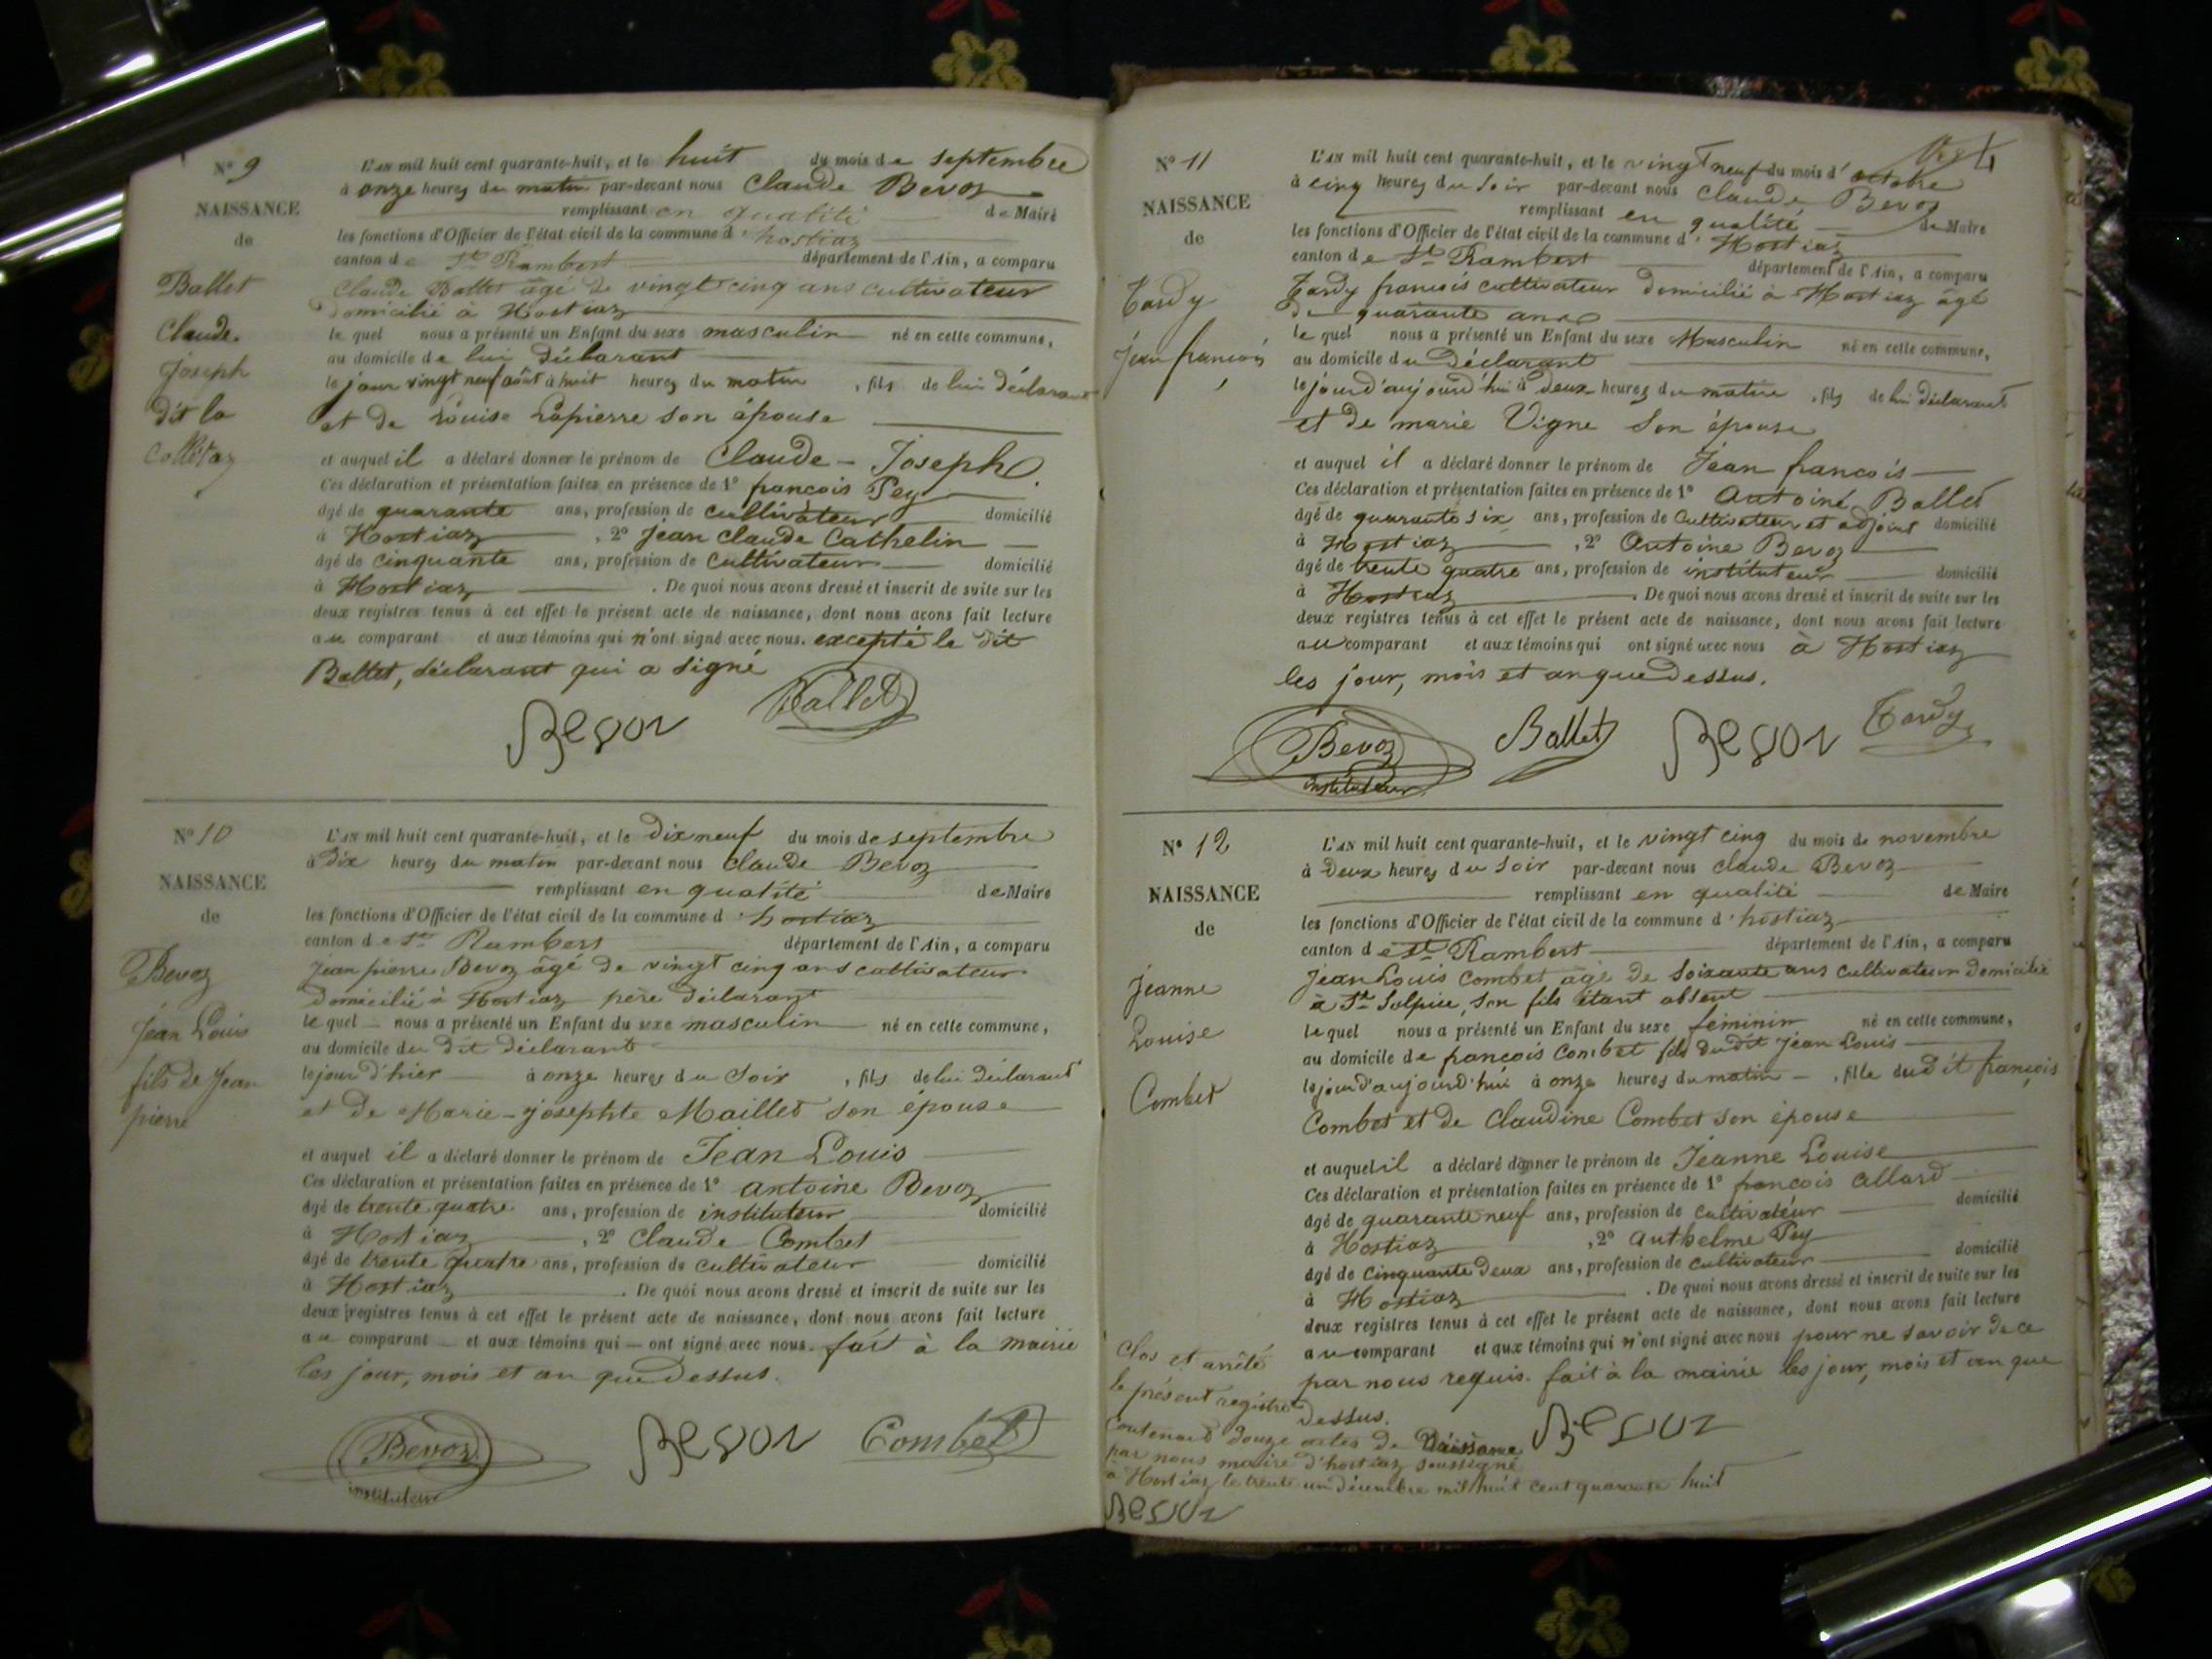 N° 9
NAISSANCE
de
Ballet
Claude
Joseph
dit la
L'AN mil huit cent quarante-huit, et le huit du mois de septembre
à onze heures du matin par-devant nous Claude Bevoz
remplissant en qualité de Maire
les fonctions d'Officier de l'état civil de la commune d'hostiaz
canton de St Rambert département de l'Ain, a comparu
Claude Ballet âgé de vingt cinq ans cultivateur
domicilié à Hostiaz
le quel nous a présenté un Enfant du sexe masculin né en cette commune,
au domicile de lui déclarant
le jour vingt neuf août à huit heures du matin, fils de lui déclarant
et de Louise Lapierre son épouse
et auquel il a déclaré donner le prénom de Claude - Joseph.
Ces déclaration et présentation faites en présence de 1° françois Pey
âgé de quarante ans, profession de cultivateur domicilié
à Hostiaz, 2° Jean Claude Cathelin
âgé de cinquante ans, profession de cultivateur domicilié
à Hostiaz. De quoi nous avons dressé et inscrit de suite sur les
deux registres tenus à cet effet le présent acte de naissance, dont nous avons fait lecture
au comparant et aux témoins qui n'ont signé avec nous. excepté le dit
Ballet, déclarant qui a signé
Bevoz Ballet
N° 10
NAISSANCE
de
Bevoz
Jean Louis
fils de Jean
pierre
L'AN mil huit cent quarante-huit, et le dix neuf du mois de septembre
à dix heures du matin par-devant nous Claude Bevoz
remplissant en qualité de Maire
les fonctions d'Officier de l'état civil de la commune d'hostiaz
canton de St Rambert département de l'Ain, a comparu
Jean pierre Bevoz âgé de vingt cinq ans cultivateur
domicilié à Hostiaz père déclarant
le quel nous a présenté un Enfant du sexe masculin né en cette commune,
au domicile du dit déclarant
le jour d'hier à onze heures du soir, fils de lui déclarant
et de Marie-josephte Maillet son épouse
et auquel il a déclaré donner le prénom de Jean Louis
Ces déclaration et présentation faites en présence de 1° antoine Bevoz
âgé de trente quatre ans, profession de instituteur domicilié
à Hostiaz, 2° Claude Combet
âgé de trente quatre ans, profession de cultivateur domicilié
à Hostiaz. De quoi nous avons dressé et inscrit de suite sur les
deux registres tenus à cet effet le présent acte de naissance, dont nous avons fait lecture
au comparant et aux témoins qui ont signé avec nous. fait à la mairie
les jour, mois et an que dessus.
Bevoz Bevoz Combet
instituteur
4
N° 11
NAISSANCE
de
Tardy
Jean françois
L'AN mil huit cent quarante-huit, et le vingt neuf du mois d'octobre
à cinq heures du soir par-devant nous Claude Bevoz
remplissant en qualité de Maire
les fonctions d'Officier de l'état civil de la commune d'Hostiaz
canton de St Rambert département de l'Ain, a comparu
Tardy francois cultivateur domicilié à Hostiaz âgé
de quarante ans
le quel nous a présenté un Enfant du sexe Masculin né en cette commune,
au domicile du Déclarant
le jourd'aujourd'hui à deux heures du matin, fils de lui déclarant
et de marie Vigne son épouse
et auquel il a déclaré donner le prénom de Jean francois
Ces déclaration et présentation faites en présence de 1° Antoine Ballet
âgé de quarante six ans, profession de Cultivateur et adjoint domicilié
à Hostiaz, 2° Antoine Bevoz
âgé de trente quatre ans, profession de instituteur domicilié
à Hostiaz. De quoi nous avons dressé et inscrit de suite sur les
deux registres tenus à cet effet le présent acte de naissance, dont nous avons fait lecture
au comparant et aux témoins qui ont signé avec nous à Hostiaz
les jour, mois et an que dessus.
Bevoz Ballet Bevoz Tardy
instituteur
N° 12
NAISSANCE
de
Jeanne
Louise
Combet
L'AN mil huit cent quarante-huit, et le vingt cinq du mois de novembre
à Deux heures du soir par-devant nous Claude Bevoz
remplissant en qualité de Maire
les fonctions d'Officier de l'état civil de la commune d'hostiaz
canton de St Rambert département de l'Ain, a comparu
Jean Louis Combet âgé de soixante ans cultivateur domicilié
à St Sulpice, son fils étant absent
le quel nous a présenté un Enfant du sexe féminin né en cette commune,
au domicile de françois Combet fils du dit Jean Louis
le jourd'aujourd'hui à onze heures du matin, fille du dit françois
Combet et de Claudine Combet son épouse
et auquel il a déclaré donner le prénom de Jeanne Louise
Ces déclaration et présentation faites en présence de 1° francois allard
âgé de quarante neuf ans, profession de cultivateur domicilié
à Hostiaz, 2° Anthelme Pey
âgé de cinquante deux ans, profession de cultivateur domicilié
à Hostiaz. De quoi nous avons dressé et inscrit de suite sur les
deux registres tenus à cet effet le présent acte de naissance, dont nous avons fait lecture
au comparant et aux témoins qui n'ont signé avec nous pour ne savoir de ce
par nous requis. fait à la mairie les jour, mois et an que
dessus. Bevoz
Clos et arrêté
le présent registre
Contenant douze actes de Naissance
par nous maire d'hostiaz soussigné
à Hostiaz le trente un décembre mil huit cent quarante huit
Bevoz